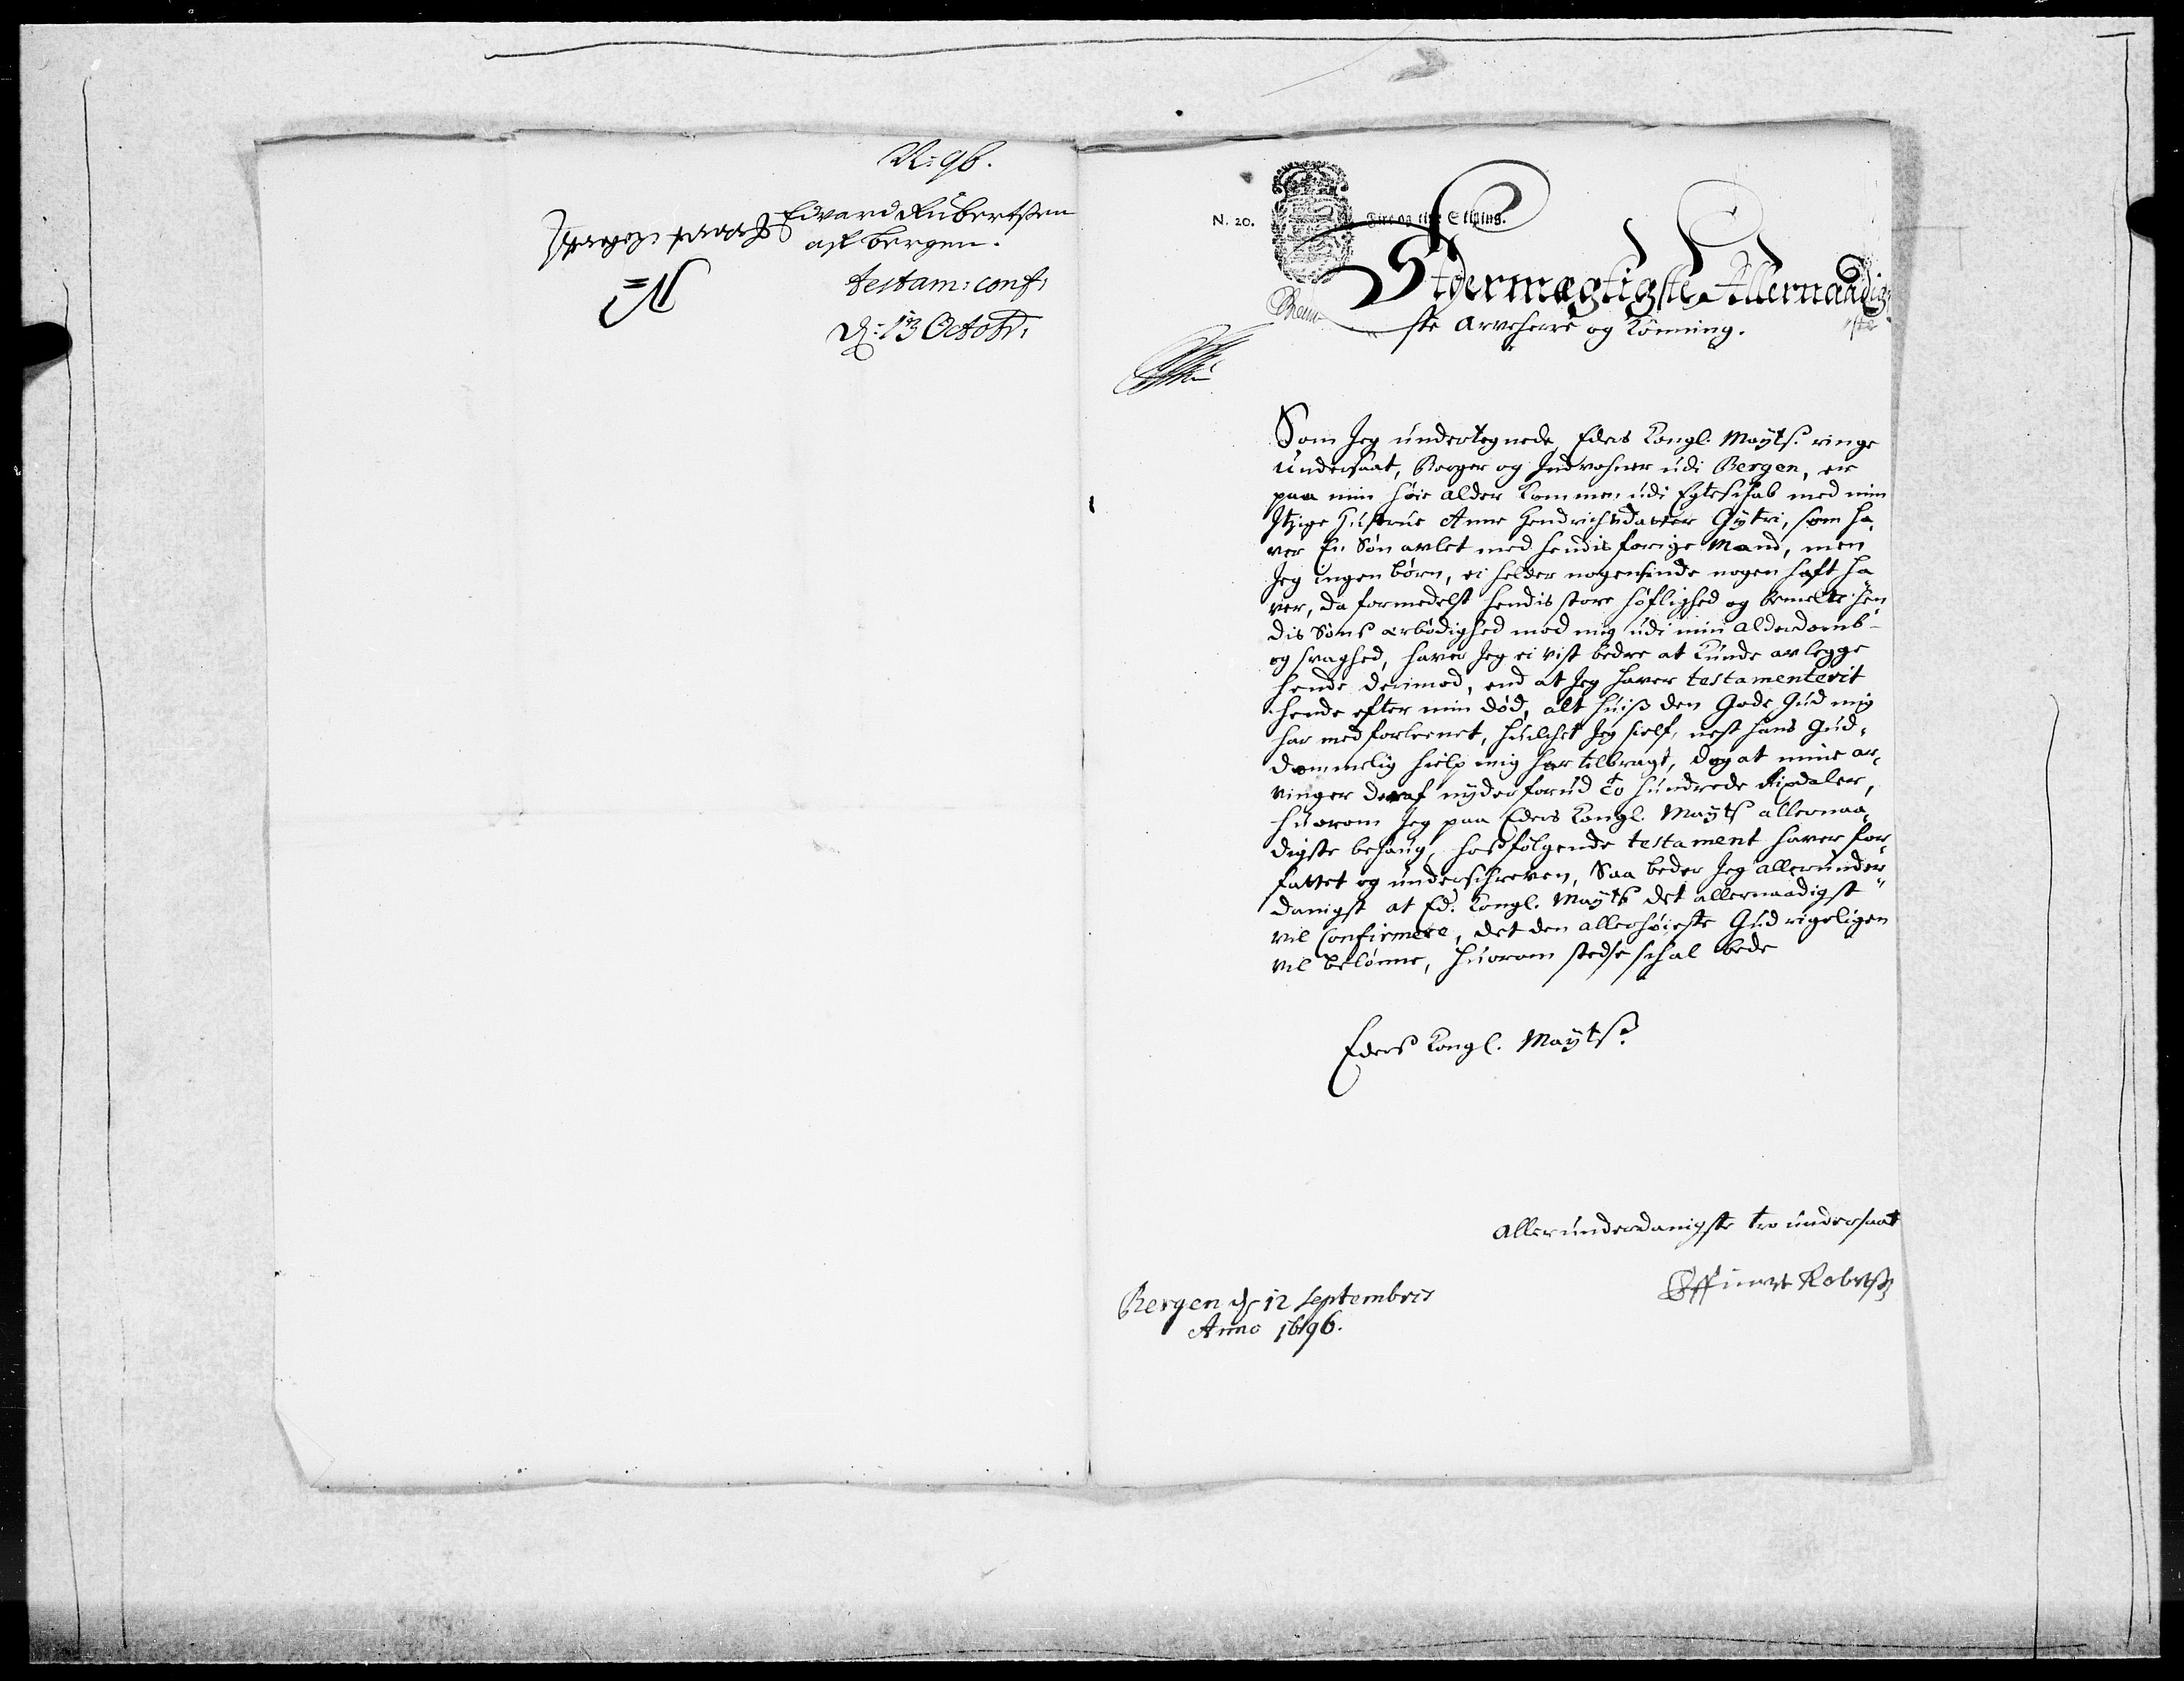 N: 96.
Edvard Rubertssen
aff bergen.
testam: conf:
d: 13 Octobr:
N. 20.
Fire og tive Skiling.
Stormægtigste Allernaadig-
ste Arveherre og Konning.
Som Jeg undertegnede Eders Kongl. Mayts. ringe
Undersaat, Borger og Indvohner udi Bergen, er
paa min høie alder kommen udi Egteschab med min
Itzige Hustrue Anne Hendrichsdatter Gÿtri, som ha¬
ver En Søn avlet med hendis forige Mand, men
Jeg ingen børn, ei heller nogensinde nogen haft ha¬
ver, da formedelst hendis store høflighed og bemelte hen¬
dis Søns ærbødighed mod mig udi min alderdombs
og svaghed, haver Jeg ei vist bedre at kunde avlegge
hende derimod, end at Jeg haver testamenterit
hende efter min død, alt huis den Gode Gud mig
har med forleenet, huilchet Jeg sielf, nest hans Gud¬
dommelig hielp mig har tilbragt, dog at mine ar¬
vinger deraf nyder forud To hundrede Rixdaler,
huorom Jeg paa Eders Kongl. Mayts allernaa¬
digste behaug, hosfølgende testament haver for¬
fattet og underschreven, Saa beder Jeg allerunder
danigst at Ed. Kongl. Mayts det allernaadigst
vil Confirmere, det den allerhøieste Gud rigeligen
vil belønne, huorom stedse schal bede
Eders Kongl. Mayts.
Allerunderdanigste tro undersaat
Robertss
Bergen d. 12 Septembris
Anno 1696.